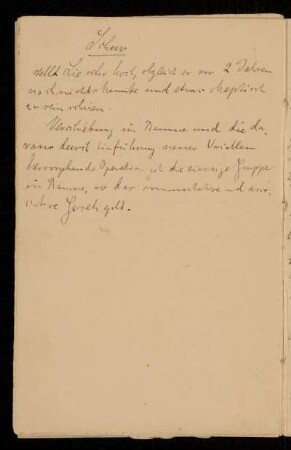 Schur
stellt Lie sehr hoch, obgleich er vor 2 Jahren
noch nichts kannte und etwas skeptisch
zu sein schien.
Verschiebung im Raume und die da-
raus durch Einführung neuer Variablen
hervorgehende Operation ist die einzige Gruppe
im Raume, wo das commutative und asso-
ciative Gesetz gilt.